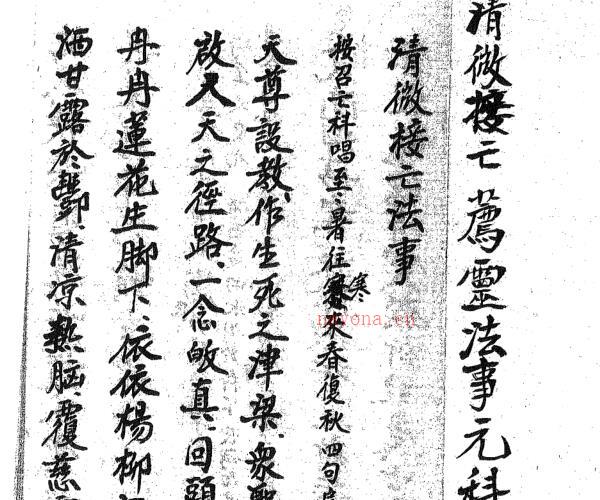 清微接亡薦靈法事元科
清微接亡法事
按召亡科唱至暑往寒來春復秋四句
天尊設教、作生死之津梁、眾聖
啟人天之徑路、一念皈真、回頭
冉冉蓮花生脚下、依依楊柳
洒甘露於酆都、清凉熱腦、覆慈
nayona.cn